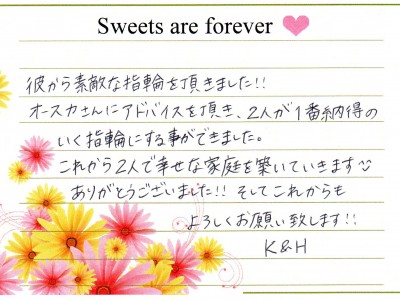 Sweets are forever
彼から素敵な指輪を頂きました!!
オースカさんにアドバイスを頂き、2人が1番納得の
いく指輪にする事ができました。
これから2人で幸せな家庭を築いていきます
ありがとうございました!! そしてこれからも
よろしくお願い致します!!
K&H